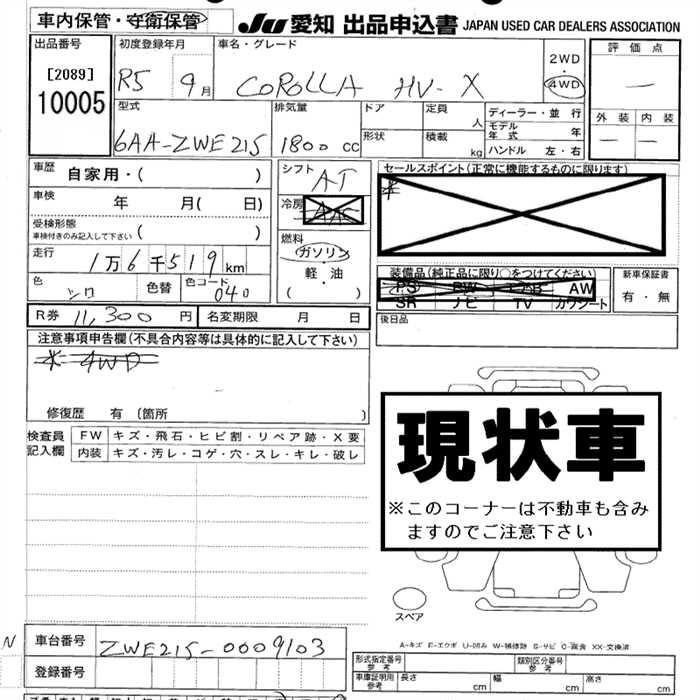 車内保管・守衛保管
JU 愛知 出品申込書 JAPAN USED CAR DEALERS ASSOCIATION
出品番号
[2089]
10005
初度登録年月
R5 9月
車名・グレード
COROLLA HV-X
2WD
・
4WD
評価点
—
外装 内装
— —
型式
6AA-ZWE215
排気量
1800 cc
ドア
形状
定員
人
積載
kg
ディーラー・並行
モデル年式 年
ハンドル 左・右
車歴
自家用・( )
車検
年 月( 日)
受検形態
車検付きのみ記入して下さい ( )
走行
1万6千519km
色
シロ
色替
色コード
040
シフト
AT
冷房
AAC
燃料
ガソリン
・
軽・油
( )
セールスポイント(正常に機能するものに限ります)
装備品(純正品に限り○をつけてください)
PS PW エアB AW
SR ナビ TV カワシート
新車保証書
有・無
R券 11,300 円
名変期限 月 日
後日品
注意事項申告欄(不具合内容等は具体的に記入して下さい)
※ 4WD
修復歴 有〔箇所 〕
検査員
記入欄
FW キズ・飛石・ヒビ割・リペア跡・X要
内装 キズ・汚レ・コゲ・穴・スレ・キレ・破レ
現状車
※このコーナーは不動車も含み
ますのでご注意下さい
スペア
A-キズ E-エクボ U-凹み W-補修跡 S-サビ C-腐食 XX-交換済
N
車台番号
ZWE215-0009103
登録番号
形式指定番号
参考
類別区分番号
参考
車庫証明用
参考
長さ cm
幅 cm
高さ cm